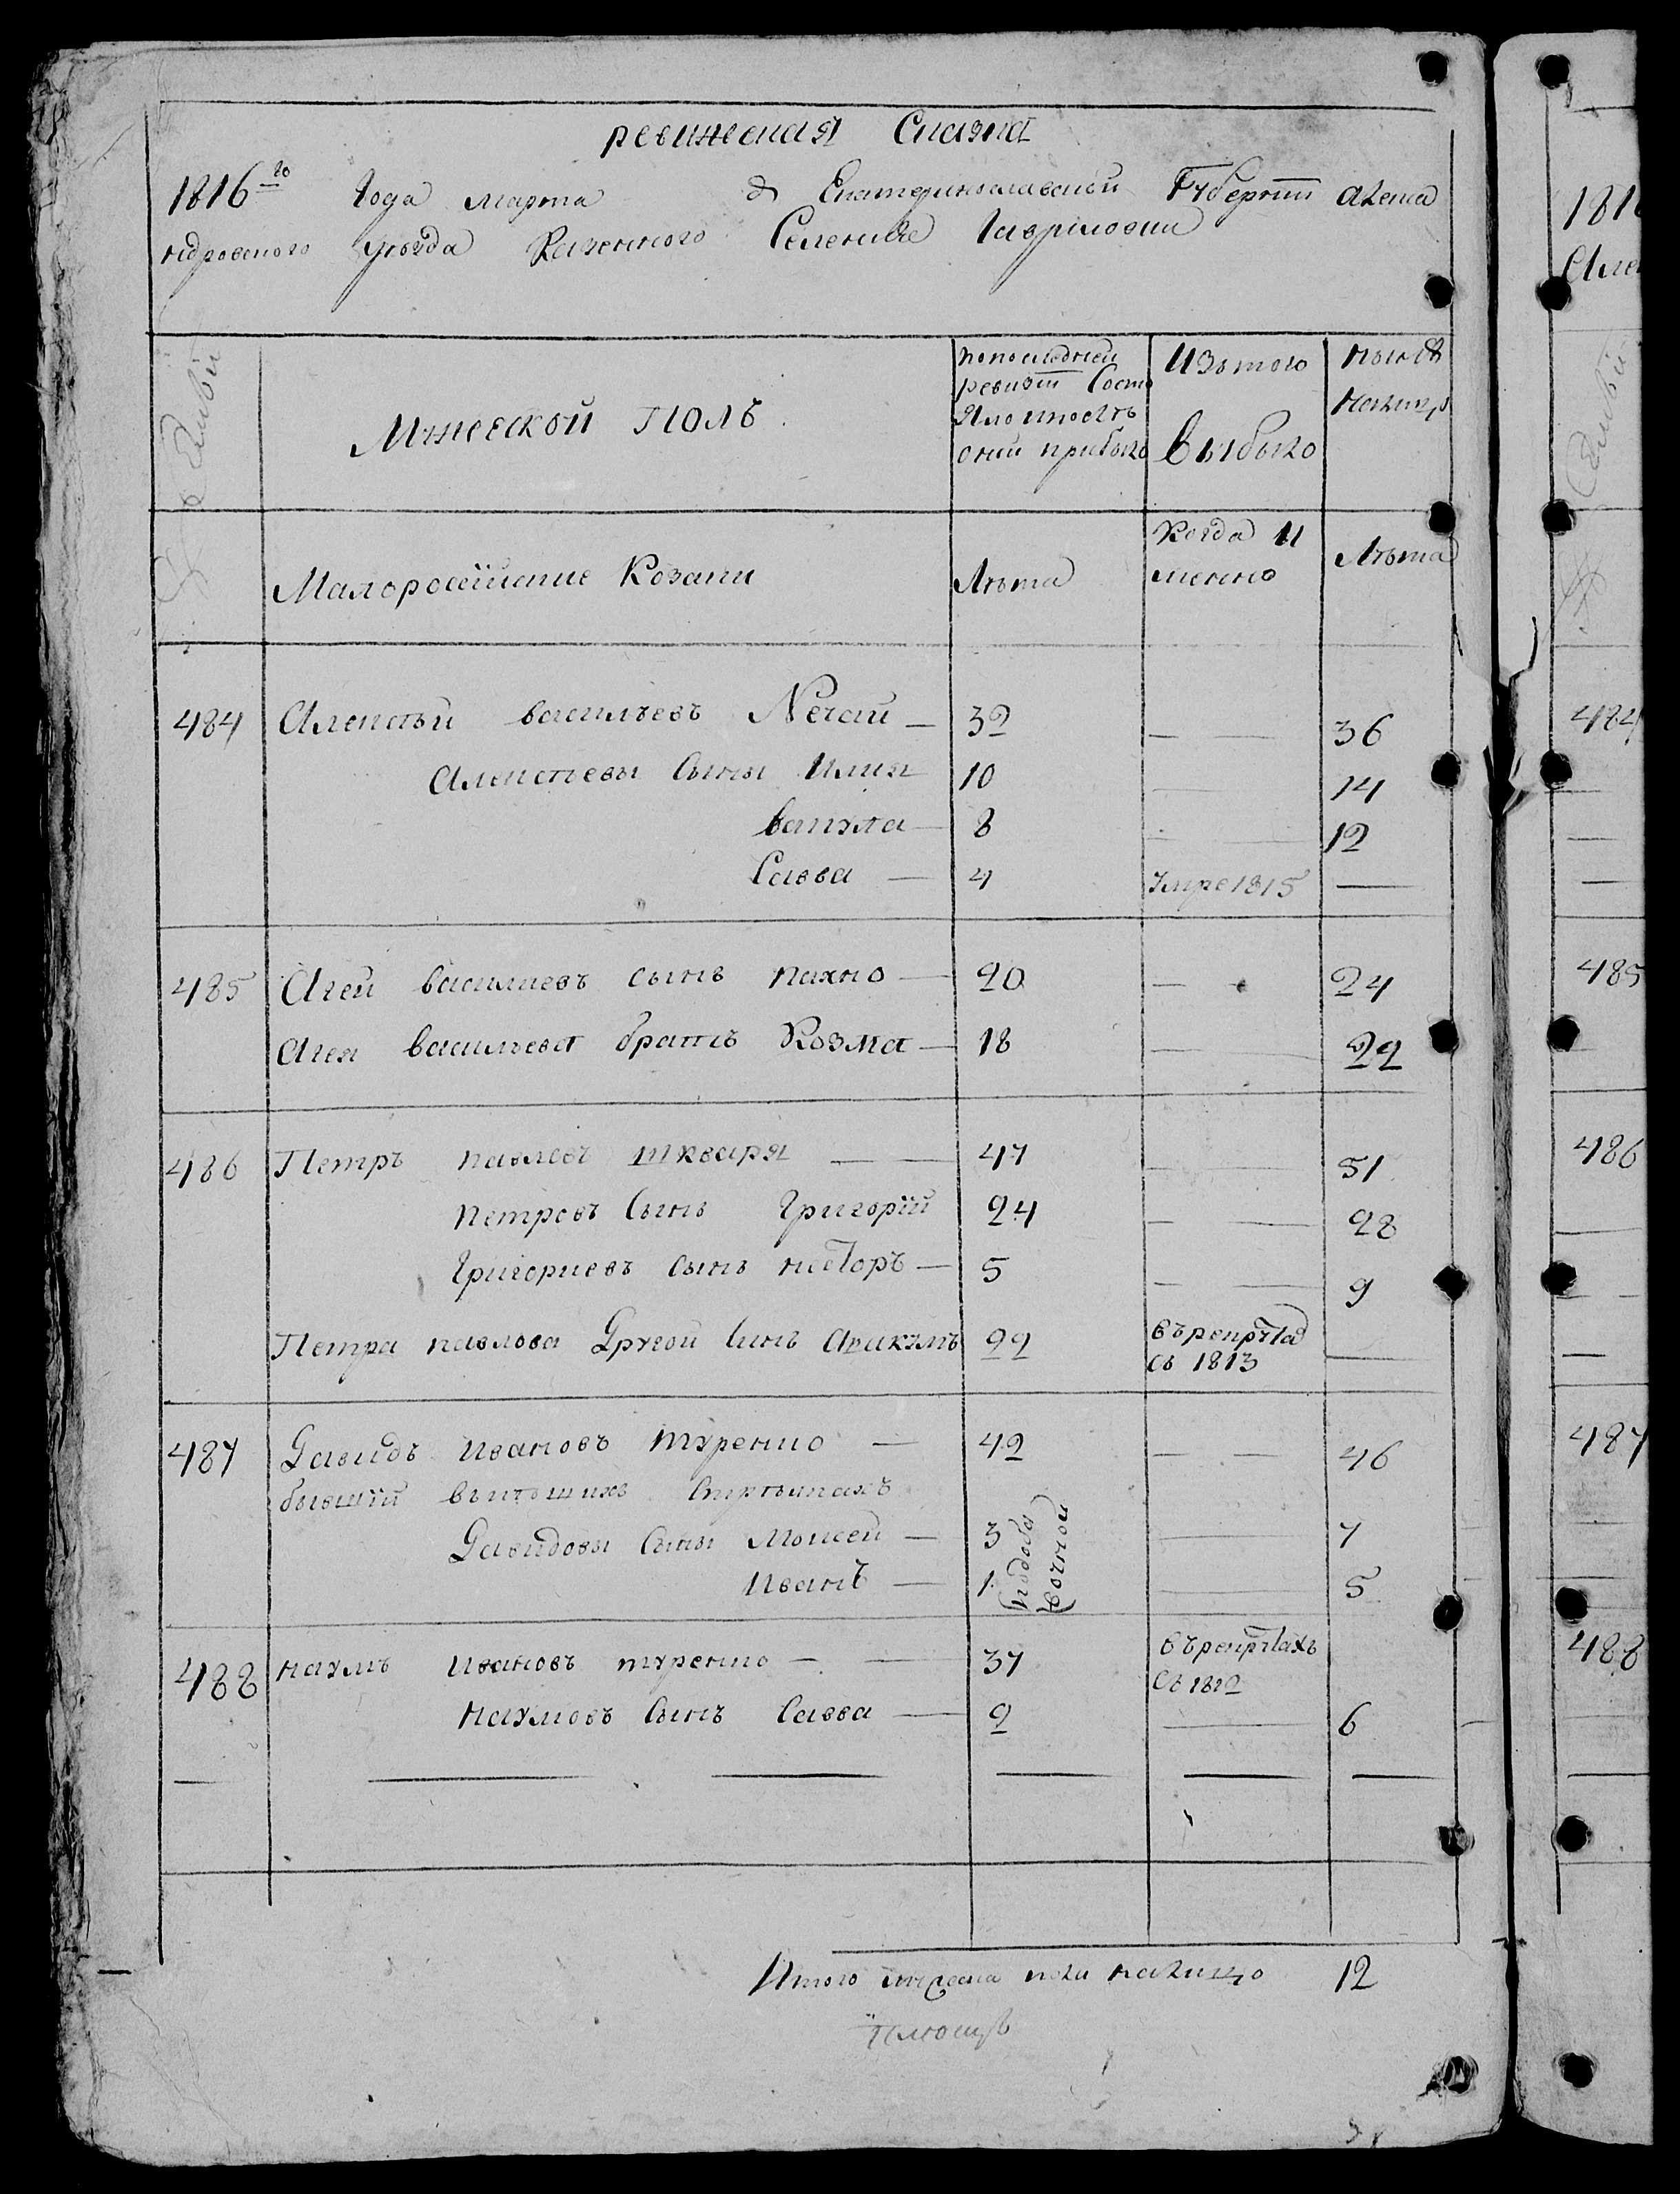 ревижская Сказка
1816го года марта д Екатеринославской Губернїи Алекса
ндровского уѣзда Казенного Селенїя Гаврѝловки
Мужеской полъ
попоследней
ревизїи Состо
яло ипослѣ
оной прибыло
Изътого
выбыло
ныне
Малоросїйские Козаки
Лѣта
Когда И
менно
Лѣта
484 Алексѣй васильевъ Nечай — 32 — — 36
Алексѣевы Сыны Илия 10 — 14
вакула — 8 — 12
Савва — 4 Умре 1815 —
485 Агей василиевъ сынъ пахно — 20 — 24
Агея васильева братъ Козма — 18 — 22
486 Петръ павлевъ шкваря — — 47 — — 51
петровъ Сынъ Григорїй 24 — — 28
Григориевъ сынъ несторъ — 5 — — 9
Петра павлова Другой Синъ Авакумъ 22 въ рекрутах
съ 1813 —
487 Давидъ ивановъ туренко — 42 — — 46
бывшїй
Давидовы Сыны Мойсей — 3 — 7
иванъ — 1 — 5
488 наумъ ивановъ туренко — — 37 въ рекрутахъ
Съ 1812
наумовъ Сынъ Савва — 2 — 6
Итого мужеска пола налицо 12
1816
484
485
486
487
488